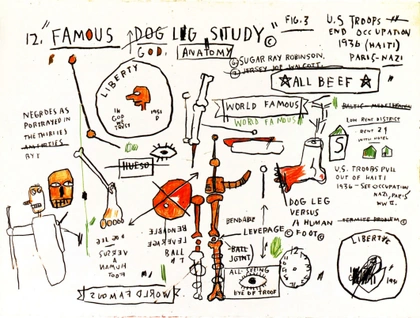 12." FAMOUS DOG LEG STUDY ©
FIG. 3
U.S TROOPS
END OCCUPATION
1936 (HAITI)
PARIS-NAZI
GOD. ANATOMY
④ SUGAR RAY ROBINSON.
LIBERTY
IN
GOD
WE
TRUST
☆ALL BEEF☆
WORLD FAMOUS
WORLD FAMOUS
LOW RENT DISTRICT
RENT 29
S
NEGROES AS
PORTRAYED IN
THE THIRTIES
BY:
HUESO
U.S. TROOPS PULL
OUT OF HAITI
1936 - SEE OCCUPATION
NAZI, PARIS
WW II.
DOG LEG
VERSUS
A HUMAN
© FOOT ©
BENDABLE
LEVERAGE
BALL
JOINT
BENDABLE
LEVERAGE
BALL
DOG LEG
VERSUS
A
HUMAN
FOOT
ALL-SEEING
EYE OF TROOP
12
LIBERTY
WORLD FAMOUS